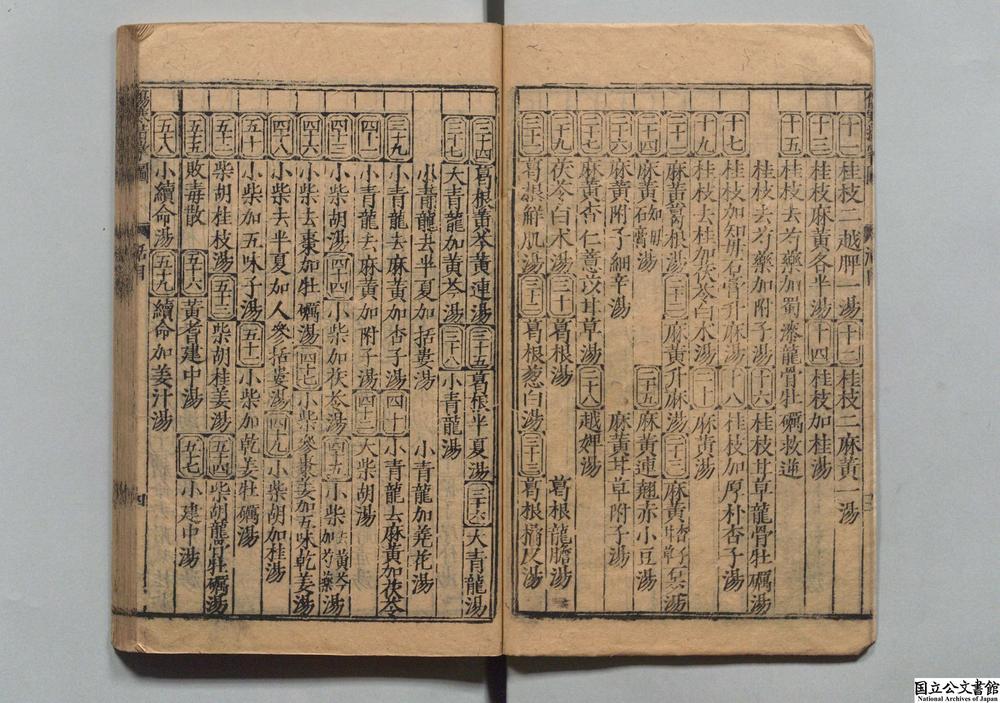 十一 桂枝二越脾一湯 十二 桂枝二麻黃一湯
十三 桂枝麻黃各半湯 十四 桂枝加桂湯
十五 桂枝去芍藥加蜀漆龍骨牡礪救逆
桂枝去芍藥加附子湯 十六 桂枝甘草龍骨牡礪湯
十七 桂枝加知母石膏升麻湯 十八 桂枝加厚朴杏子湯
十九 桂枝去桂加茯苓白朮湯 二十 麻黃湯
二十一 麻黃葛根湯 二十二 麻黃升麻湯 二十三 麻黃杏子甘草石膏湯
二十四 麻黃知母石膏湯 二十五 麻黃連翹赤小豆湯
二十六 麻黃附子細辛湯 麻黃甘草附子湯
二十七 麻黃杏仁薏苡甘草湯 二十八 越婢湯
二十九 茯苓白朮湯 三十 葛根湯 葛根龍膽湯
三十一 葛根解肌湯 三十二 葛根葱白湯 三十三 葛根湯
三十四 葛根黃芩黃連湯 三十五 葛根半夏湯 三十六 大青龍湯
三十七 大青龍加黃芩湯 三十八 小青龍湯
小青龍去半夏加括蔞湯 小青龍加蕘花湯
三十九 小青龍去麻黃加杏子湯 四十 小青龍去麻黃加茯苓
四十一 小青龍去麻黃加附子湯 四十二 大柴胡湯
四十三 小柴胡湯 四十四 小柴加茯苓湯 四十五 小柴去黃芩加芍藥湯
四十六 小柴去棗加牡礪湯 四十七 小柴去參棗姜加五味乾姜湯
四十八 小柴去半夏加人參括蔞湯 四十九 小柴胡加桂湯
五十 小柴加五味子湯 五十一 小柴加乾姜牡礪湯
五十二 柴胡桂枝湯 五十三 柴胡桂姜湯 五十四 柴胡龍骨牡礪湯
五十五 敗毒散 五十六 黃耆建中湯 五十七 小建中湯
五十八 小續命湯 五十九 續命加姜汁湯
国立公文書館
National Archives of Japan